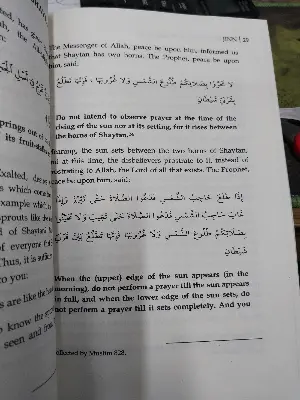 The Messenger of Allah, peace be upon him, informed us
that Shaytan has two horns. The Prophet, peace be upon
him, said:
لا تَحَرَّوْا بِصَلَاتِكُمْ طُلُوعَ الشَّمْسِ وَلا غُرُوبَهَا ، فَإِنَّهَا تَطْلُعُ
بِقَرْنَيْ شَيْطَانٍ
Do not intend to observe prayer at the time of the
rising of the sun nor at its setting, for it rises between
the horns of Shaytan.
the sun sets between the two horns of Shaytan,
at this time, the disbelievers prostrate to it, instead of
prostrating to Allah, the Lord of all that exists. The Prophet,
peace be upon him, said:
إِذَا طَلَعَ حَاجِبُ الشَّمْسِ فَدَعُوا الصَّلاةَ حَتَّى تَبْرُزَ وَإِذَا
غَابَ حَاجِبُ الشَّمْسِ فَدَعُوا الصَّلاةَ حَتَّى تَغِيبَ وَلا تَحَيَّنُوا
بِصَلاتِكُمْ طُلُوعَ الشَّمْسِ وَلا غُرُوبَهَا فَإِنَّهَا تَطْلُعُ بَيْنَ قَرْنَيْ
شَيْطَانٍ
When the (upper) edge of the sun appears (in the
morning), do not perform a prayer till the sun appears
in full, and when the lower edge of the sun sets, do
not perform a prayer till it sets completely. And you
Collected by Muslim 828.
prings out of
its fruit-
Exalted, des
s which con
example which
sprouts like
d of Shaytan
of everyone
Thus, it is
to you:
s are like the
to know the
seen and